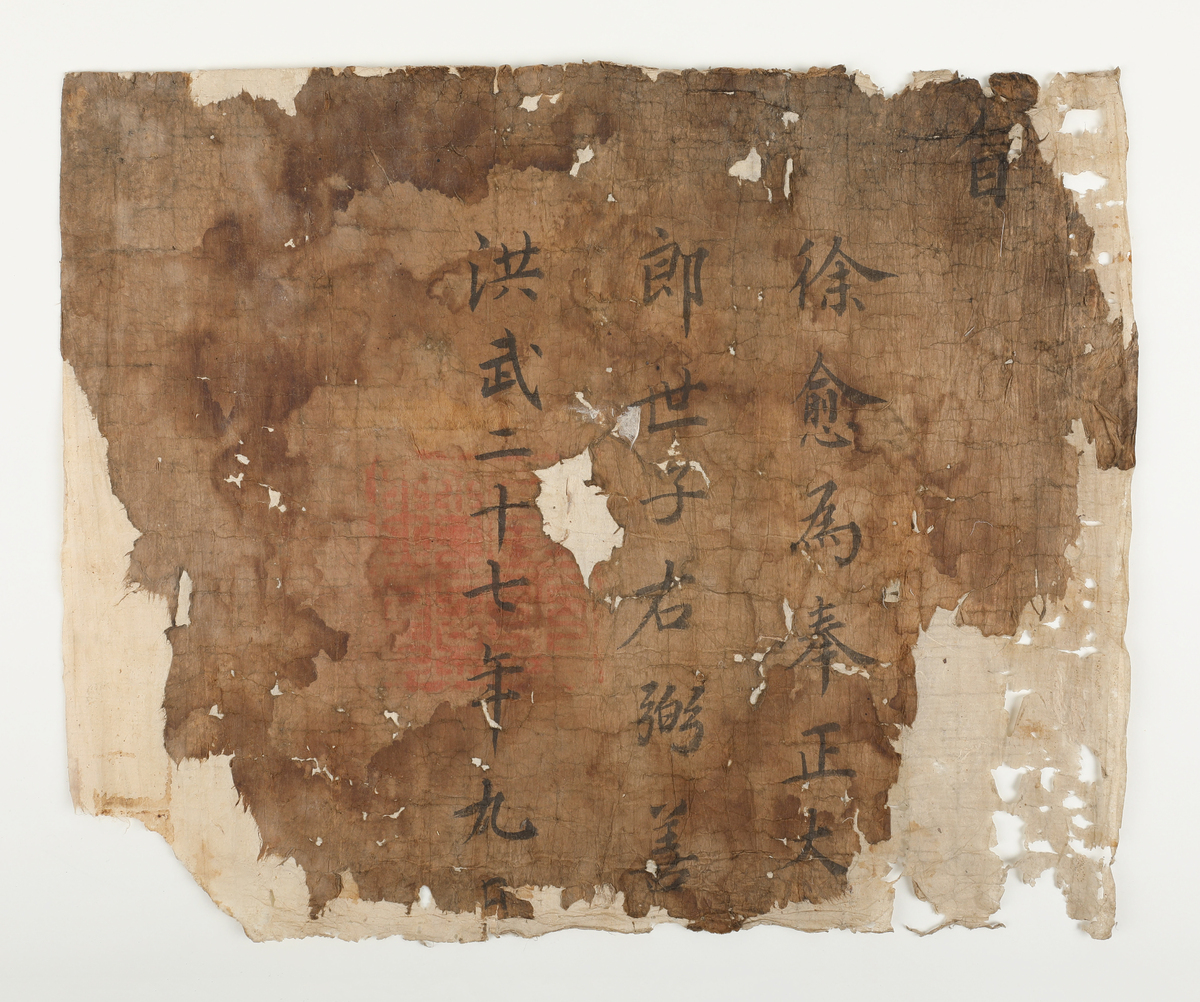 旨
徐愈為奉正大
郎世子右弼善
洪武二十七年九